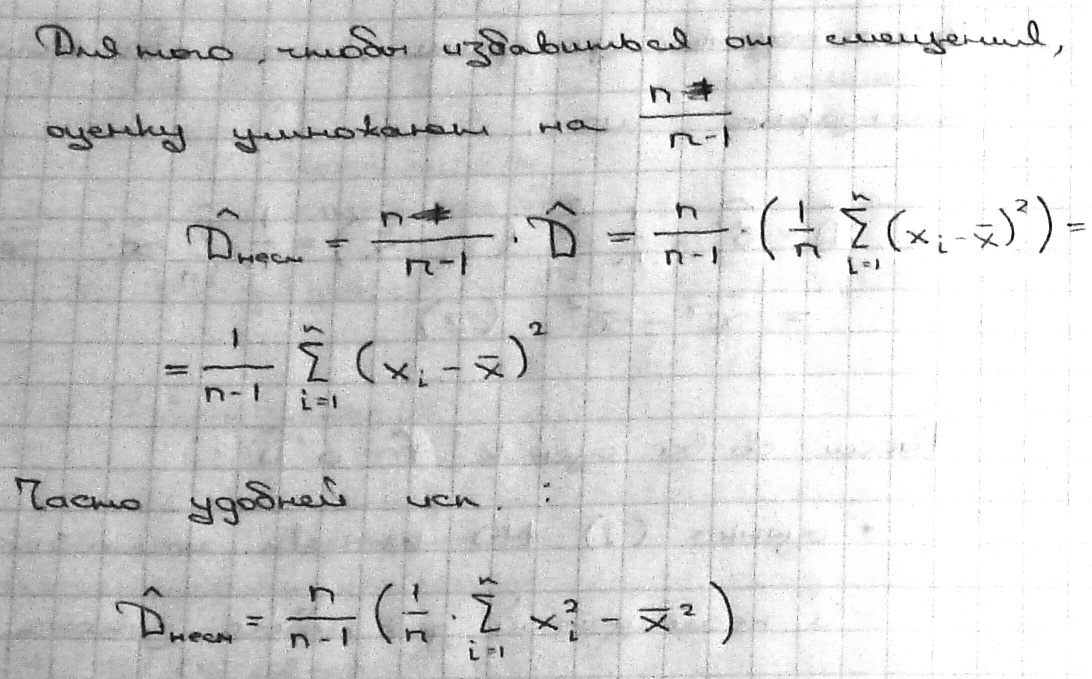 Для того, чтобы избавиться от смещения,
оценку умножают на n/(n-1)
D̂несм = n/(n-1) · D̂ = n/(n-1) · (1/n ∑_{i=1}^{n} (x_i - x̄)²) =
= 1/(n-1) ∑_{i=1}^{n} (x_i - x̄)²
Часто удобней исп. :
D̂несм = n/(n-1) (1/n · ∑_{i=1}^{n} x_i² - x̄²)